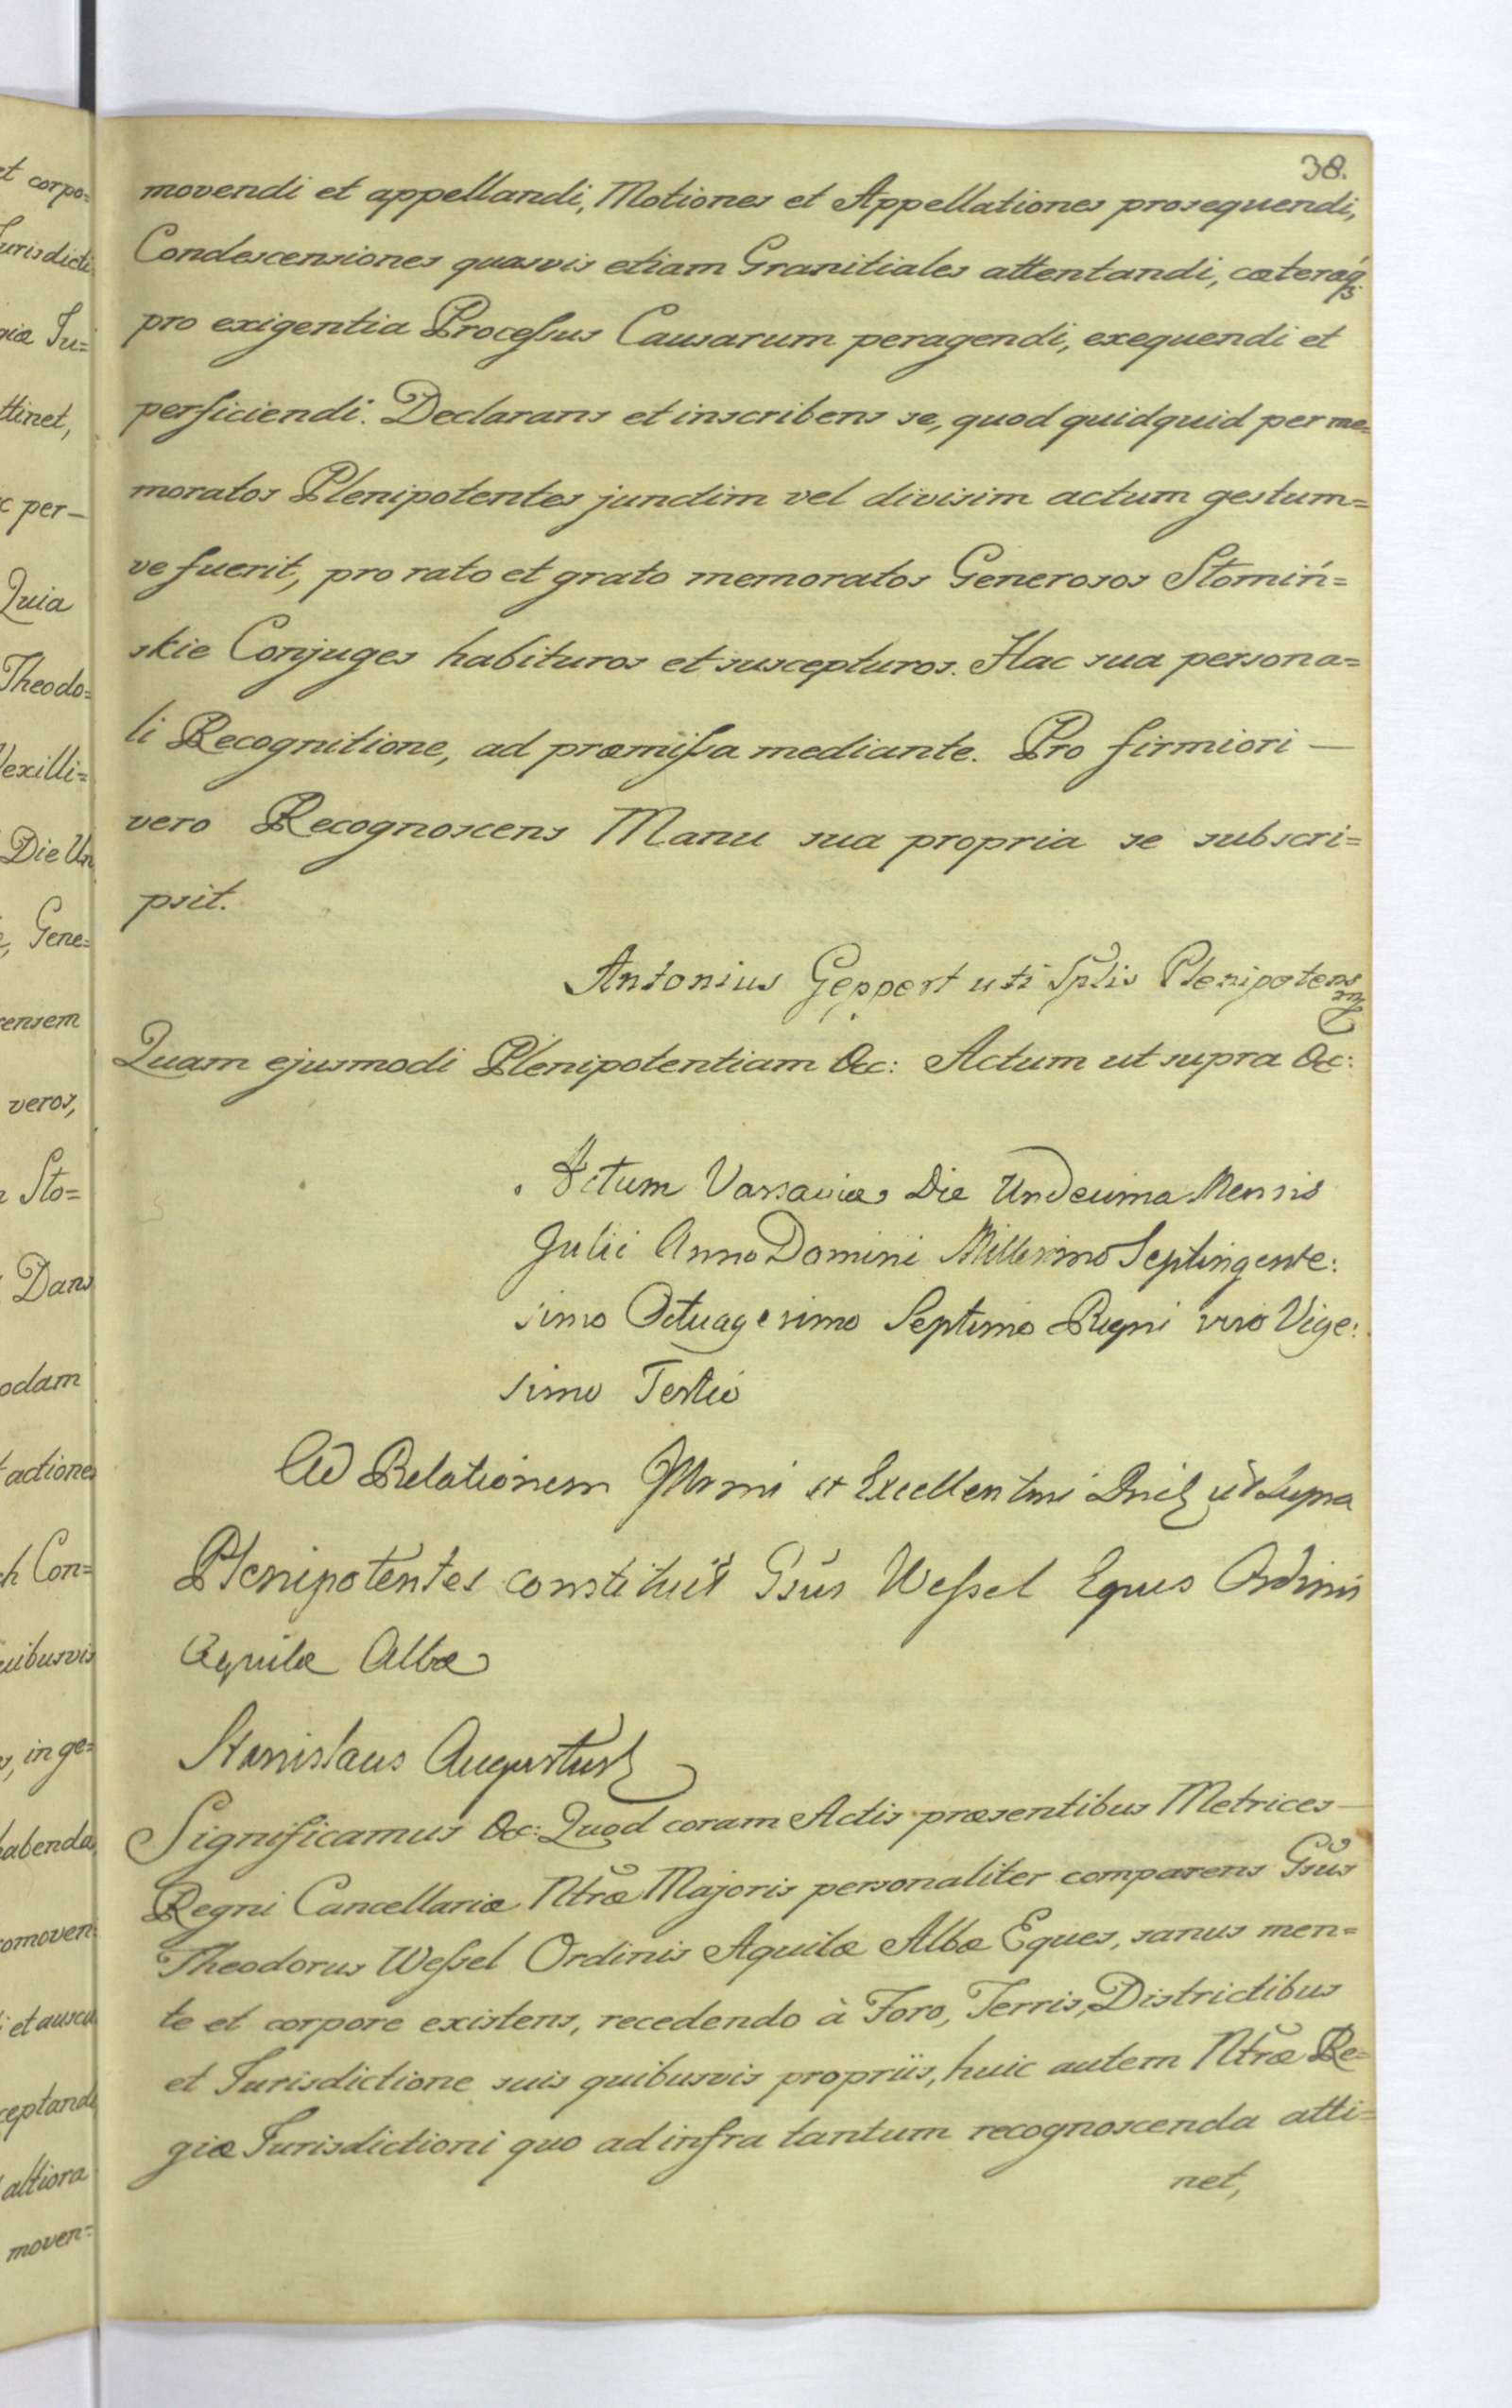 38.
movendi et appellandi, Motiones et Appellationes prosequendi,
Condescensiones quasvis etiam Granitiales attentandi, cæteraq;
pro exigentia Processus Causarum peragendi, exequendi et
perficiendi. Declarans et inscribens se, quod quidquid per me=
moratos Plenipotentes junctim vel divisim actum gestum=
ve fuerit, pro rato et grato memoratos Generosos Stomiń=
skie Conjuges habituros et suscepturos. Hac sua persona=
li Recognitione, ad præmissa mediante. Pro firmiori —
vero Recognoscens Manu sua propria se subscri=
psit.
Antonius Geppert uti Splis Plenipotens
Quam ejusmodi Plenipotentiam &c: Actum ut supra &c:
Actum Varsaviæ Die Undecima Mensis
Julii Anno Domini Millesimo Septingente:
simo Octuagesimo Septimo Regni vero Vige:
simo Tertio
Ad Relationem Illrmi et Excellentmi Dni ut Supra
Plenipotentes constituit Gsus Wessel Eques Ordinis
Aquilæ Albæ
Stanislaus Augustus
Significamus &c: Quod coram Actis præsentibus Metrices —
Regni Cancellariæ Ntræ Majoris personaliter comparens Gsus
Theodorus Wessel Ordinis Aquilæ Albæ Eques, sanus men=
te et corpore existens, recedendo à Foro, Terris, Districtibus
et Jurisdictione suis quibusvis propriis, huic autem Ntræ Re=
giæ Jurisdictioni quo ad infra tantum recognoscenda atti=
net,